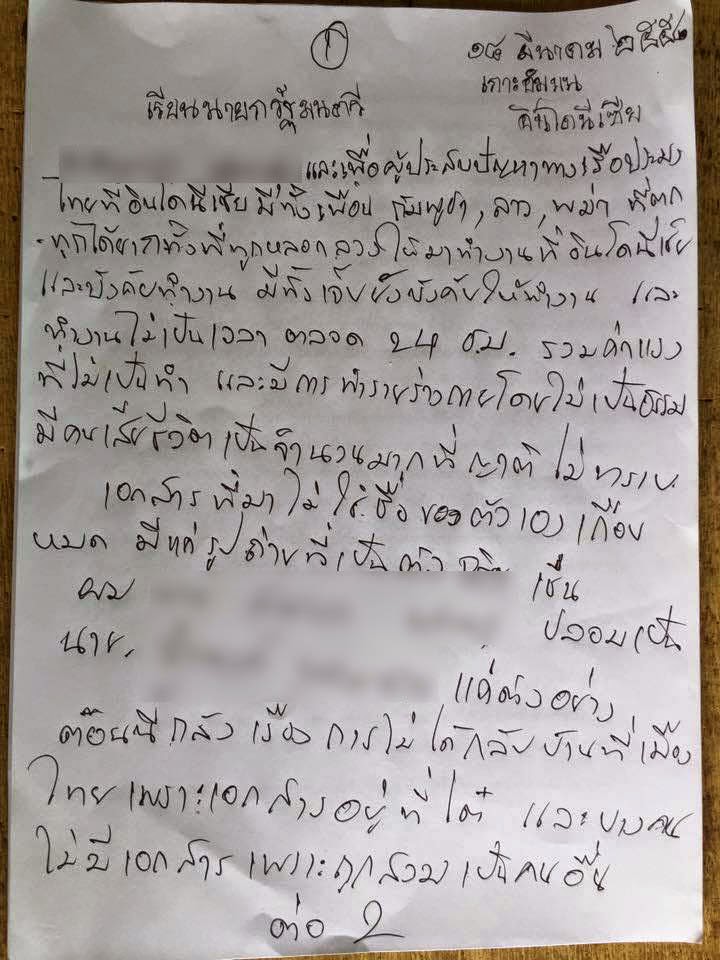 ①
๑๘ มีนาคม ๒๕๕๘
เกาะอัมบน
อินโดนีเซีย
เรียนนายกรัฐมนตรี
และเพื่อผู้ประสบปัญหาทางเรือประมง
ไทยที่อินโดนีเซีย มีทั้งเพื่อน กัมพูชา, ลาว, พม่า ที่ตก
ทุกได้ยากทั้งที่ถูกหลอกลวงให้มาทำงานที่อินโดนีเซีย
และบังคับทำงาน มีทั้งเจ็บยังบังคับให้ทำงาน และ
ทำงานไม่เป็นเวลา ตลอด 24 ช.ม. รวมค่าแรง
ที่ไม่เป็นทำ และมีการทำร้ายร่างกายโดยไม่เป็นธรรม
มีคนเสียชีวิตเป็นจำนวนมากที่ญาติไม่ทราบ
เอกสารที่มาไม่ใช่ชื่อของตัวเองเกือบ
หมด มีแค่รูปถ่ายที่เป็นตัว
ผม เช่น
นาย. ปลอมเป็น
แค่ตัวอย่าง
ต๊อนนี้กลัวเรื่องการไม่ได้กลับบ้านที่เมือง
ไทยเพราะเอกสารอยู่ที่ไต๋ และบางคน
ไม่มีเอกสารเพราะถูกสวมเป็นคนอื่น
ต่อ 2